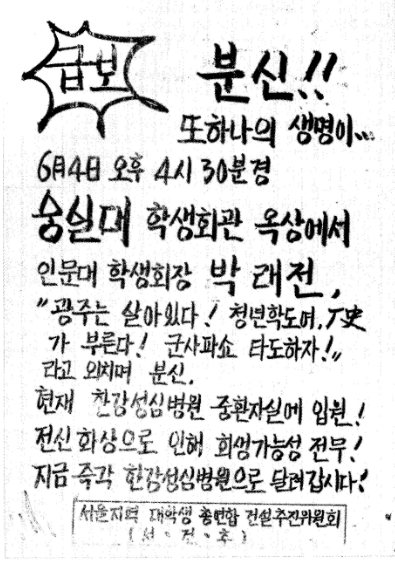 급보
분신!!
또하나의 생명이...
6月4日 오후 4시 30분경
숭실대 학생회관 옥상에서
인문대 학생회장 박래전,
"광주는 살아있다! 청년학도여, 丆史
가 부른다! 군사파쇼 타도하자!"
라고 외치며 분신.
현재 한강성심병원 중환자실에 입원!
전신화상으로 인해 회생가능성 전무!
지금 즉각 한강성심병원으로 달려갑시다!
서울지역 대학생 총연합 건설추진위원회
(서·건·추)